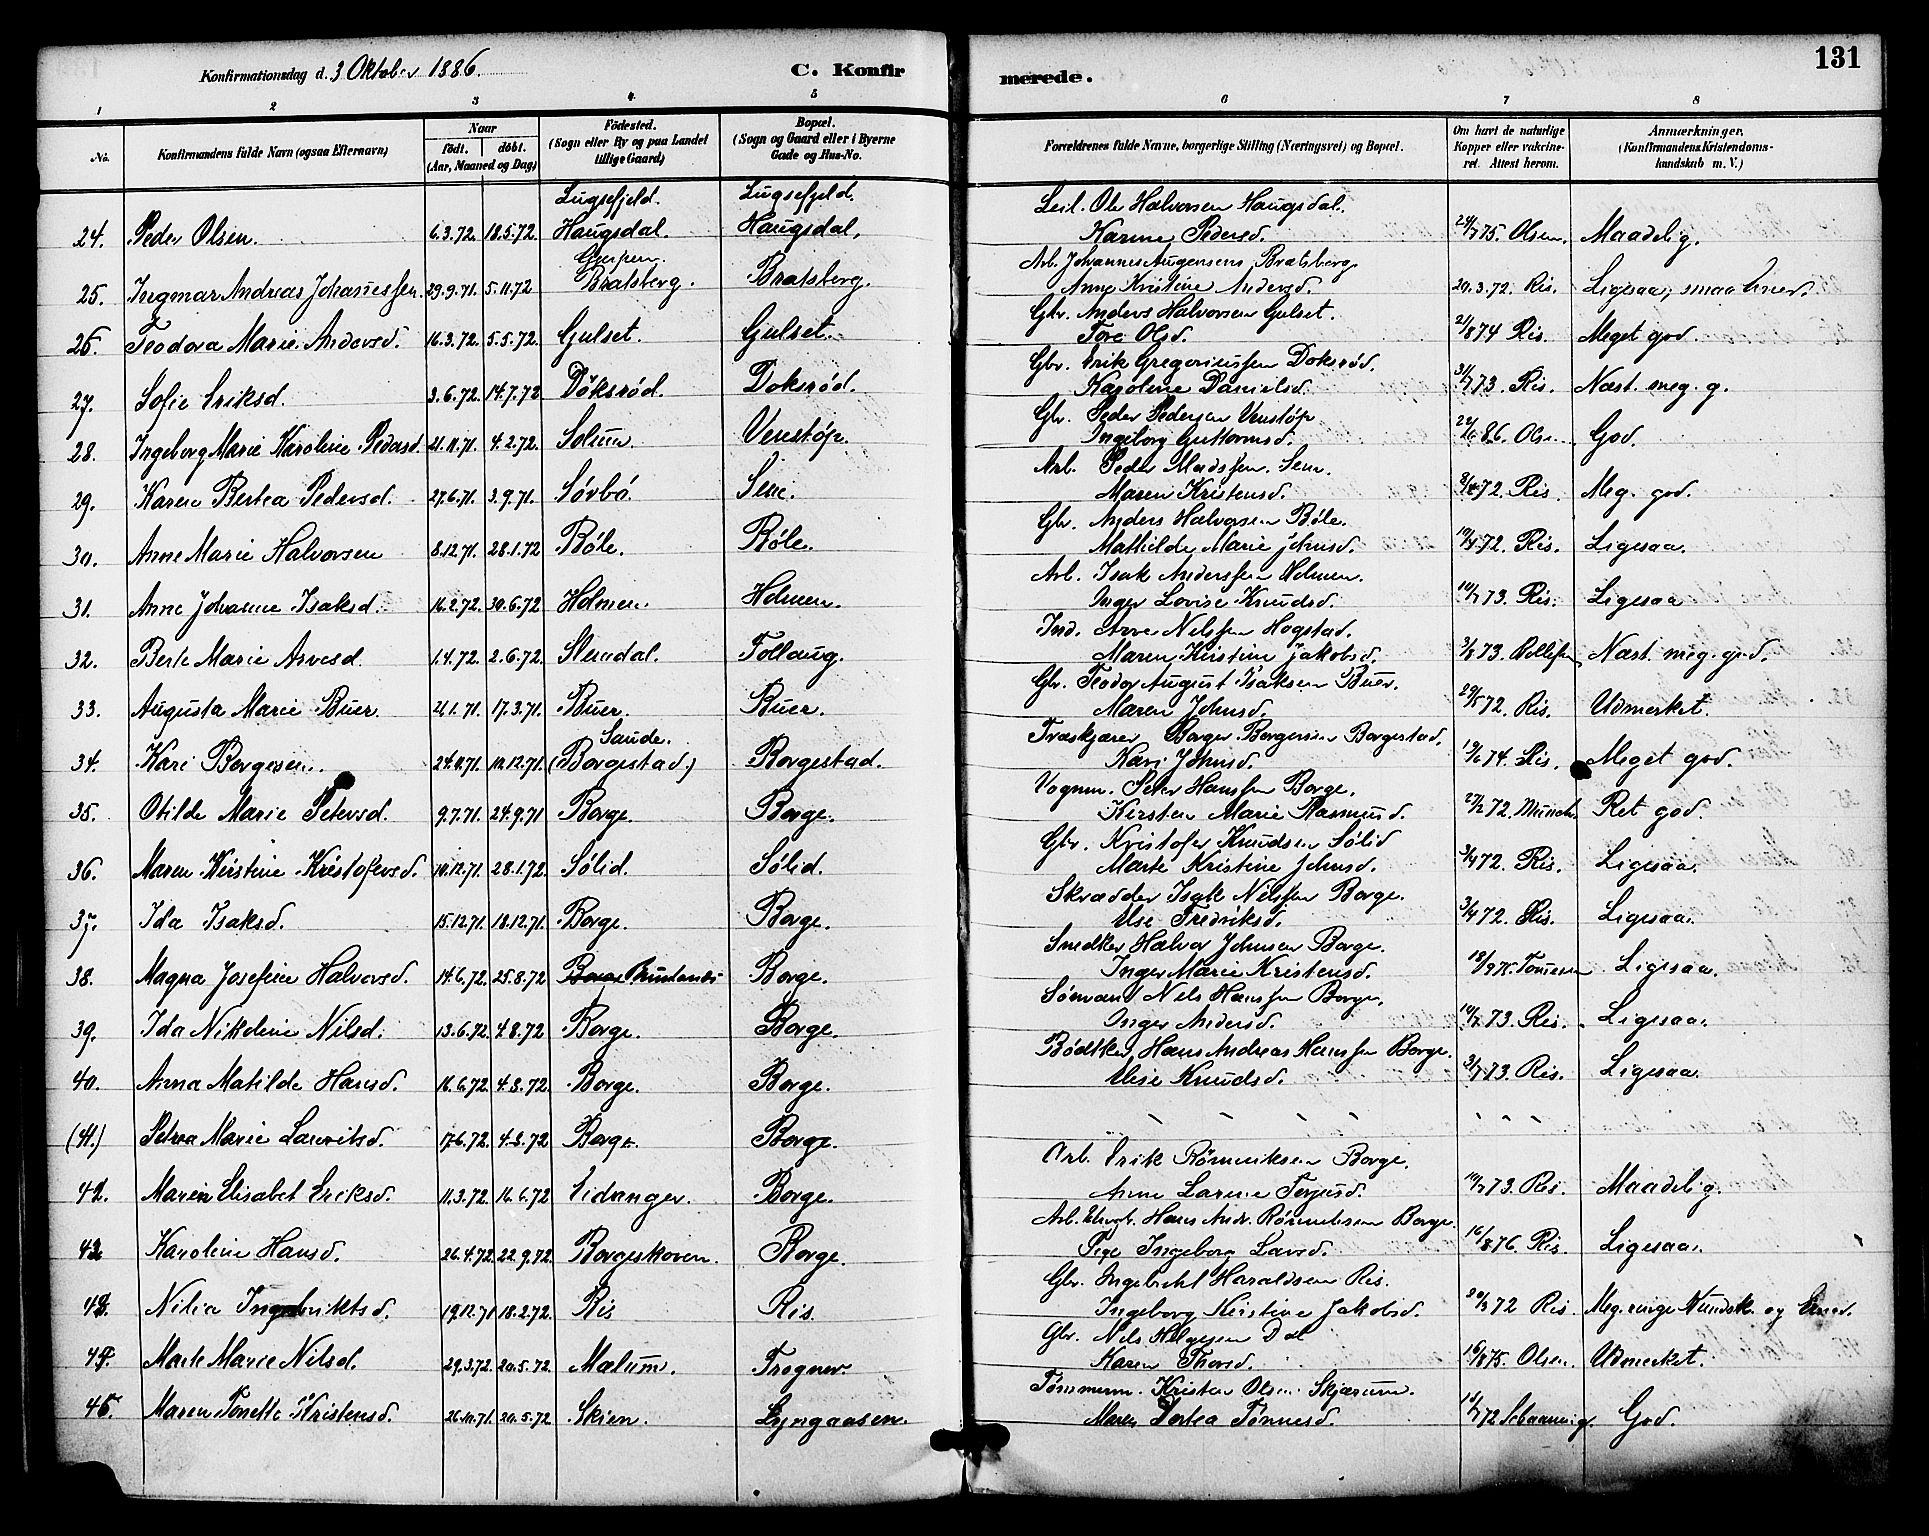 131
Konfirmationsdag d. 3 Oktober 1886. C. Konfirmerede.
1 2 3 4 5 6 7 8
No. Konfirmandens fulde Navn (ogsaa Efternavn) Naar födt. döbt. (Aar, Maaned og Dag) Födested. (Sogn eller By og paa Landet tillige Gaard) Bopæl. (Sogn og Gaard eller i Byerne Gade og Hus-No. Forældrenes fulde Navne, borgerlige Stilling (Næringsvei) og Bopæl. Om havt de naturlige Kopper eller vakcineret. Attest herom. Anmærkninger, (Konfirmandens Kristendomskundskab m. V.)
Lugsefjeld. Lugsefjeld. Leil. Ole Halvorsen Haugsdal.
24. Peder Olsen. 6.3.72. 18.5.72. Haugsdal. Haugsdal. Karine Pedersd. 24/7 75. Olsen. Maadelig.
Gjerpen. Arb. Johannes Augensens Bratsberg
25. Ingmar Andreas Johannessen. 29.9.71. 5.11.72 Bratsberg. Bratsberg. Anne Kristine Andersd. 20.3.72. Ris. Ligesaa, smaa Evner.
Gbr. Anders Halvorsen Gulset.
26. Teodora Marie Andersd. 16.3.72. 5.5.72. Gulset. Gulset. Tore Olsd. 21/8 74 Ris. Meget god.
Gbr. Erik Gregoriussen Doksröd.
27. Sofie Eriksd. 3.6.72. 14.7.72 Döksröd. Doksröd. Karoline Danielsd. 31/7 73. Ris. Næst. meg. g.
Gbr. Peder Pedersen Venstöp
28. Ingeborg Marie Karoline Pedersd. 21.11.71. 4.2.72. Solum. Venstöp. Ingeborg Guttormsd. 22/6 86. Olsen. God.
Arb. Peder Madssen. Sem.
29. Karen Bertea Pedersd. 27.6.71. 3.9.71. Sörbö. Sem. Maren Kristensd. 72. Ris. Meg. god.
Gbr. Anders Halvorsen Böle.
30. Anne Marie Halvorsen 8.12.71. 28.1.72 Böle. Böle. Mathilde Marie Johnsd. 72. Ris. Ligesaa.
Arb. Isak Anderssen Holmen.
31. Anne Johanne Isaksd. 16.2.72. 30.6.72 Holmen. Holmen. Inger Lovise Knudsd. 14/7 73. Ris. Ligesaa
Ind. Arve Nilssen Hogstad.
32. Berte Marie Arvesd. 1.4.72. 2.6.72. Slemdal. Follaug. Maren Kirstine Jakobsd. 3/8 73. Næst. meg. god.
Gbr. Teodor August Isaksen Buer.
33. Augusta Marie Buer. 21.1.71. 17.3.71. Buer. Buer. Maren Johnsd. 29/5 72. Ris. Udmerket.
Saude. Træskjærer Borger Borgersen Borgestad.
34. Kari Borgesen. 24.11.71. 10.12.71. (Borgestad.) Borgestad. Kari Johnsd. 19/6 74. Ris. Meget god.
Vognm. Peter Hanssen Borge.
35. Otilde Marie Petersd. 9.7.71. 24.9.71 Borge. Borge. Kirsten Marie Rasmusd. 27/2 72. Munch. Ret god.
Gbr. Kristofer Knudsen Sölid
36. Maren Kirstine Kristofersd. 10.12.71. 28.1.72. Sölid. Sölid. Marte Kristine Johnsd. 3/4 72. Ris. Ligesaa.
Skrædder Isak Nilssen Borge.
37. Ida Isaksd. 15.12.71. 18.12.71. Borge. Borge. Else Fredriksd. 3/4 72. Ris. Ligesaa.
Snedker Halvor Johnsen Borge.
38. Magna Josefine Halvorsd. 14.6.72. 25.8.72 Borge Borge. Inger Marie Kristensd. Ligesaa.
Sömand Nils Hanssen Borge.
39. Ida Nikoline Nilsd. 13.6.72. 4.8.72 Borge. Borge. Inger Andersd. 14/7 73. Ris. Ligesaa.
Bödtker Hans Andreas Hanssen Borge.
40. Anna Matilde Hansd. 16.6.72. 4.8.72. Borge. Borge. Else Knudsd. 3/7 73. Ris. Ligesaa.
(41.) Petrea Marie Lauritsd. 17.6.72. 4.8.72 Borge. Borge.
Arb. Erik Römniksen Borge.
42. Maren Elisabet Eriksd. 11.3.72. 16.6.72. Eidanger. Borge. Anne Larine Terjusd. 14/7 73. Ris. Maadelig.
Arb. Hans Andr. Borge.
42 Karoline Hansd. 26.4.72. 22.9.72. Borgeskoven. Borge. Pige Ingeborg Larsd. 16/8 76. Ris. Ligesaa.
Gbr. Ingebrikt Haraldsen Ris.
43. Nilia Ingebriktsd. 19.12.71 18.2.72. Ris Ris. Ingeborg Kirstine Jakobsd. 72 Ris. Meg. ringe Kundsk. og Evner.
Gbr. Nils Helgesen Dal
44. Marte Marie Nilsd. 29.3.72. 20.5.72. Mælum. Trogner. Karen Thorsd. 16/8 75. Olsen. Udmerket.
Tömmerm. Kristen Olsen Skjærum.
45. Maren Tonette Kristensd. 26.10.71. 20.5.72. Skien. Lyngaasen. Maren Dortea Tönnesd. 72 God.